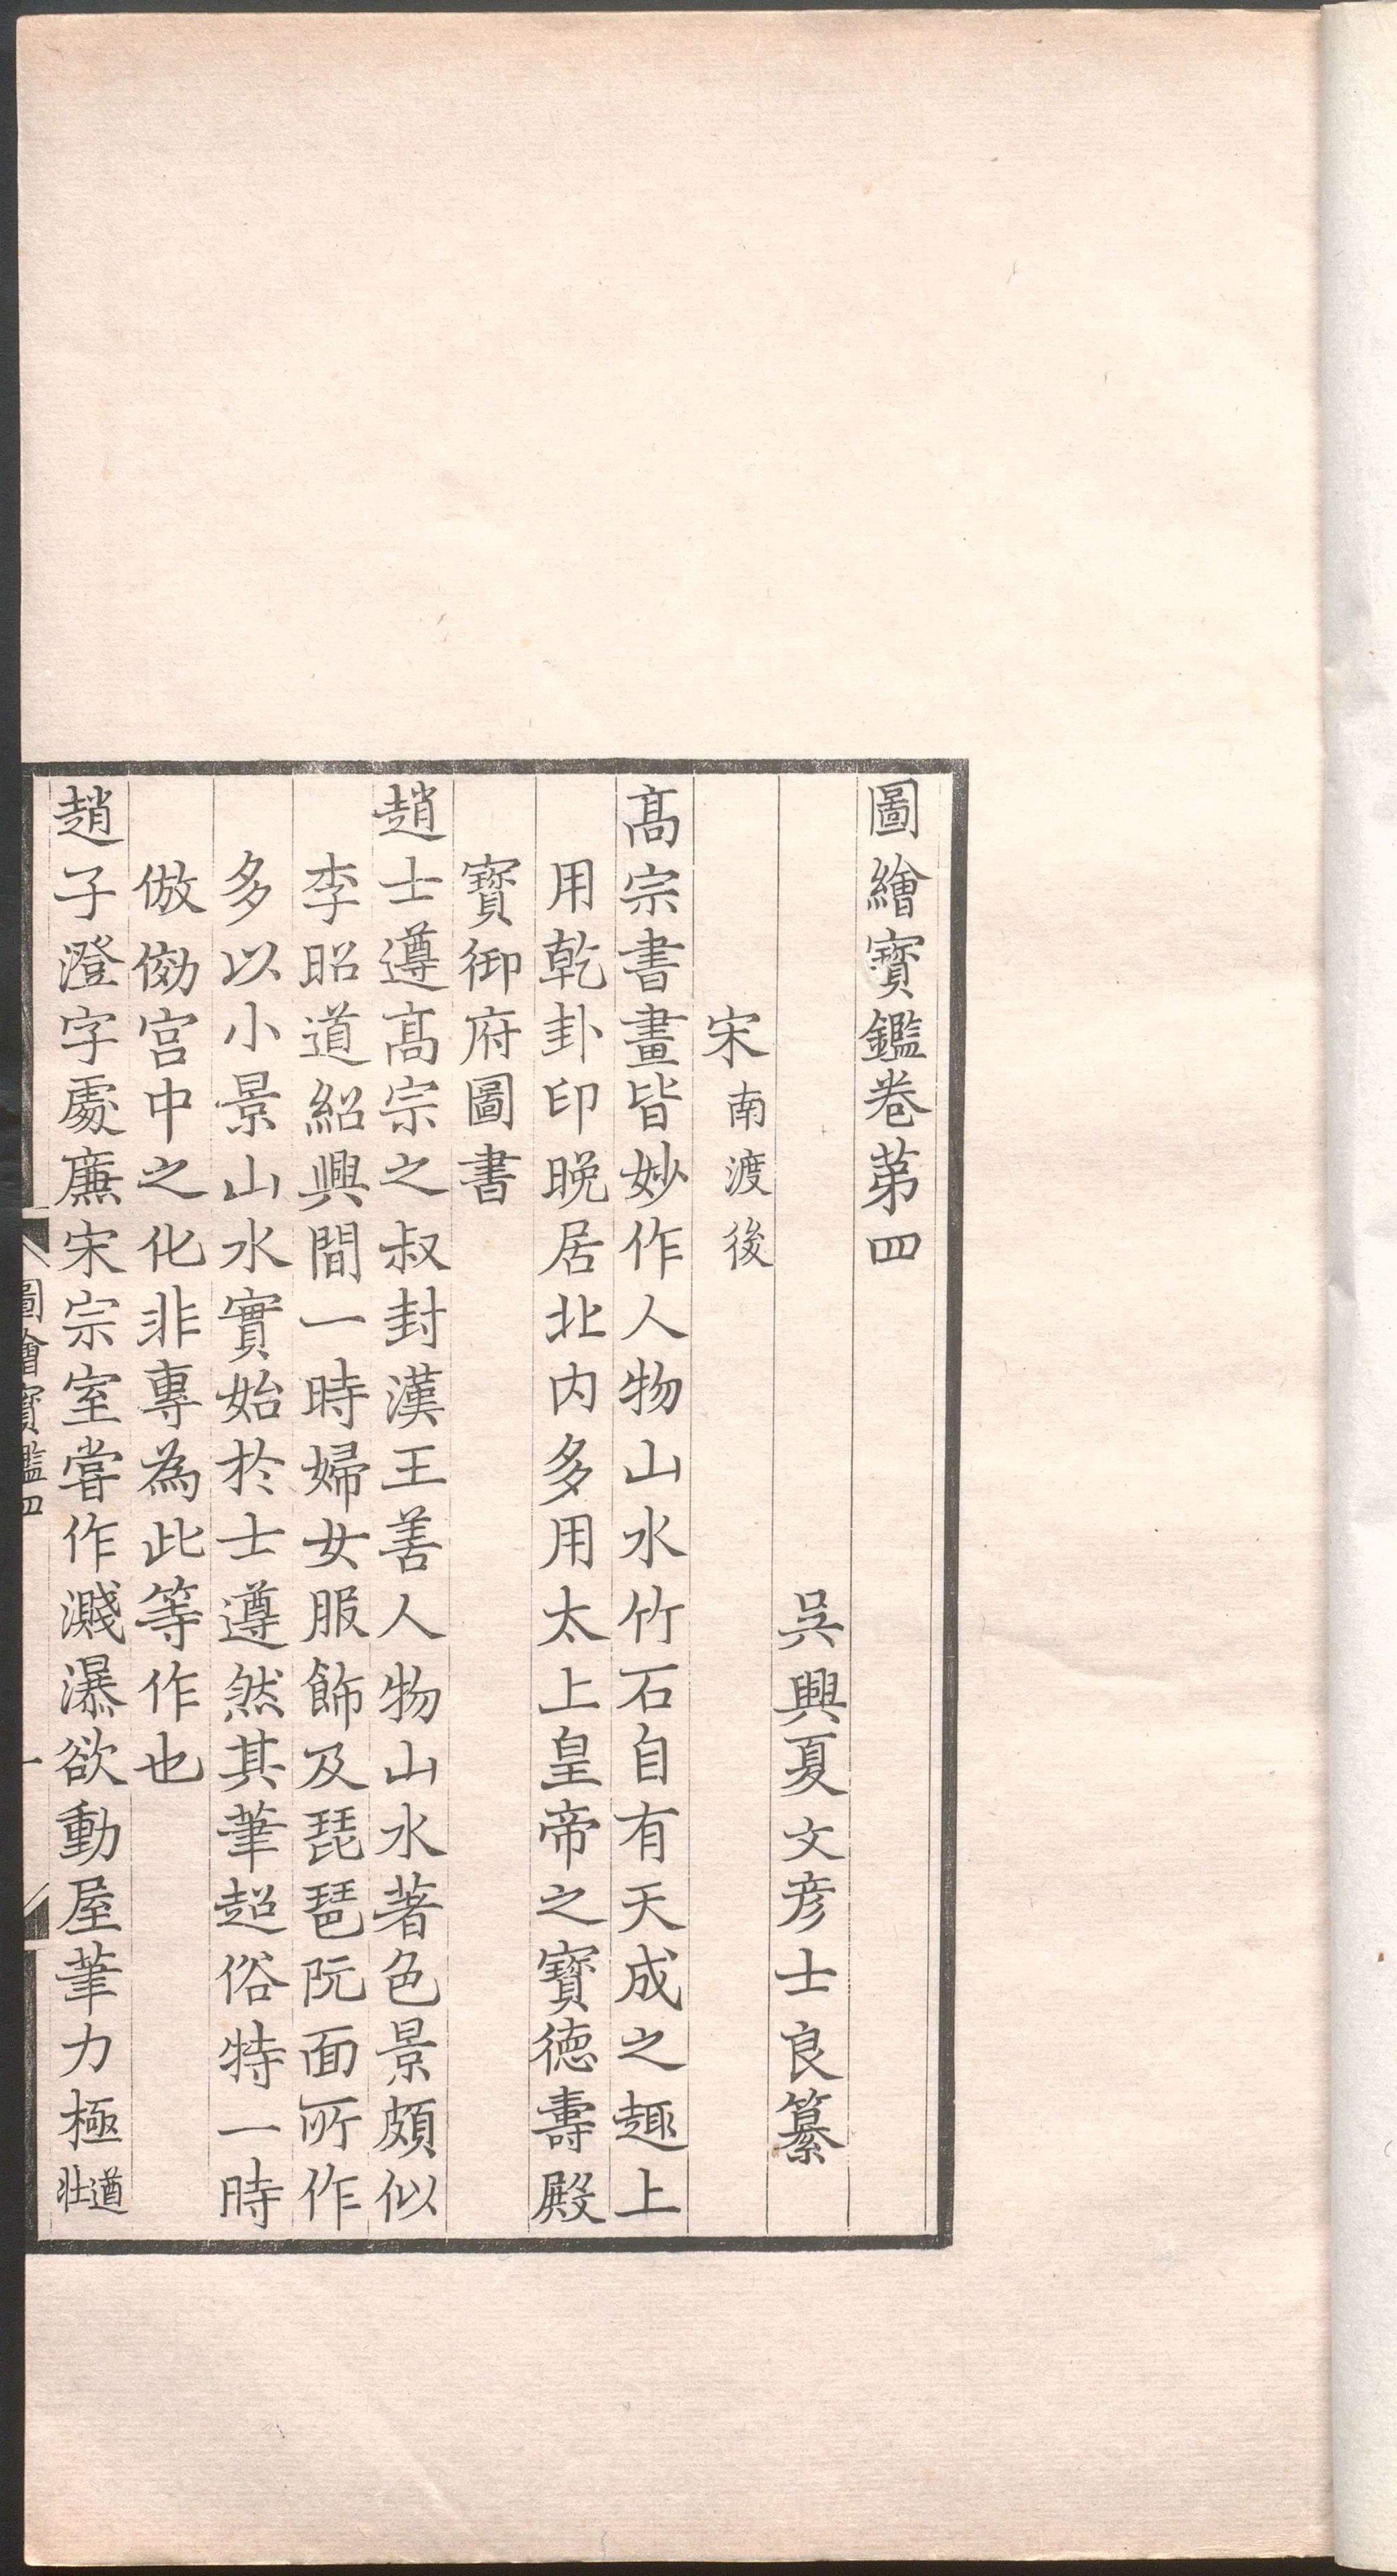 圖繪寳鑑卷第四
吳興夏文彥士良纂
宋南渡後
髙宗書畫皆妙作人物山水竹石自有天成之趣上
用乾卦印晚居北内多用太上皇帝之寳德壽殿
寳御府圖書
趙士遵髙宗之叔封漢王善人物山水著色景頗似
李昭道紹興間一時婦女服飾及琵琶阮面所作
多以小景山水實始於士遵然其筆超俗特一時
倣傚宫中之化非專為此等作也
趙子澄字處廉宋宗室嘗作濺瀑欲動屋筆力極遒壯
圖繪寳鑑四
一